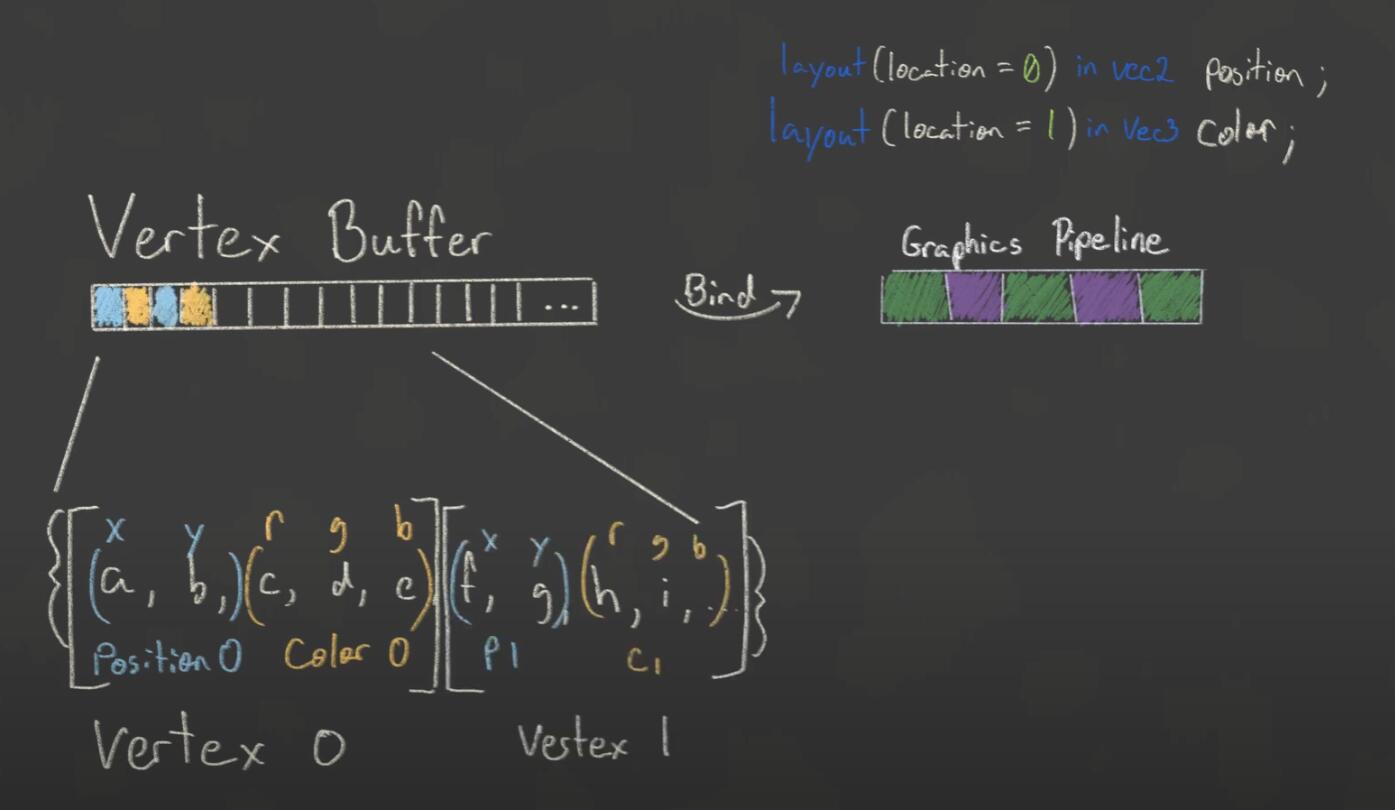 layout (location = 0) in vec2 position;
layout (location = 1) in vec3 color;
Vertex Buffer
...
Bind
Graphics Pipeline
x y r g b x y r g b
{[(a, b,)(c, d, e)][(f, g),(h, i, ..)]}
Position 0 Color 0 P1 C1
Vertex 0 Vestex 1